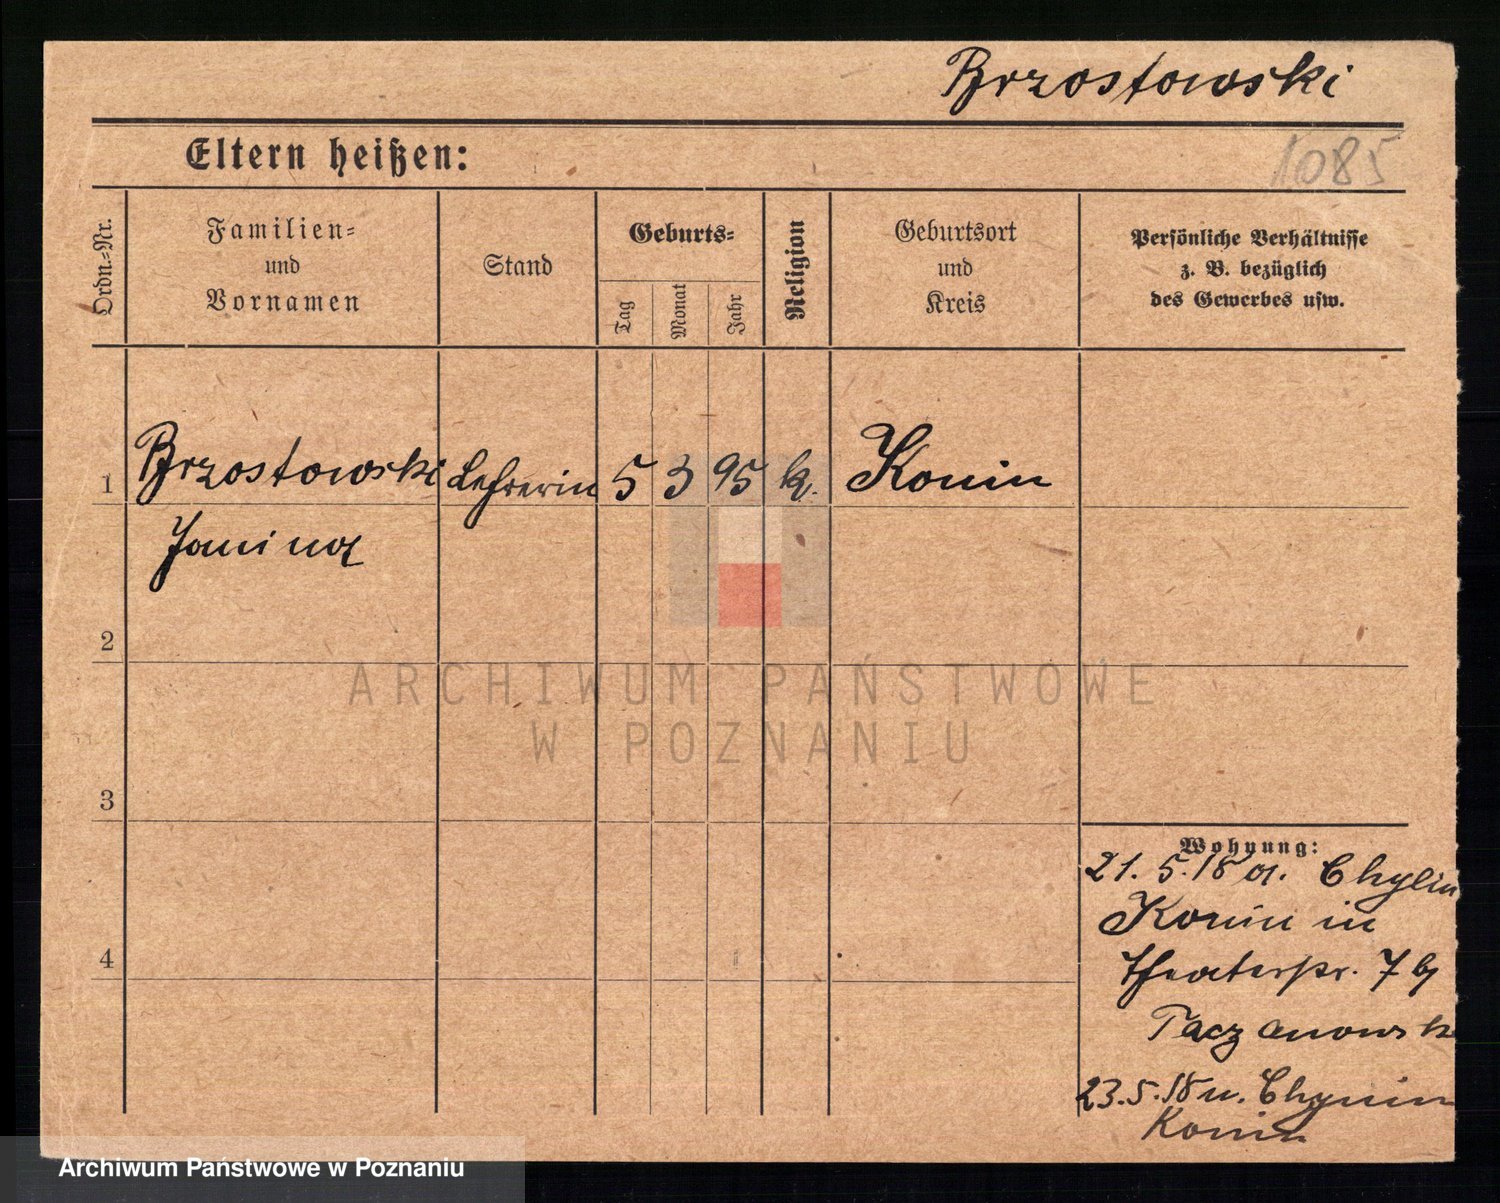 Brzostowski
1085
Eltern heißen:
Ordn.-Nr.
Familien-
und
Vornamen
Stand
Geburts-
Tag
Monat
Jahr
Religion
Geburtsort
und
Kreis
Persönliche Verhältnisse
z. B. bezüglich
des Gewerbes usw.
1
Brzostowski Lehrerin 5 3 95 k. Konin
Janina
2
3
4
Wohnung:
21. 5. 18 a. Chylin
Konin in
Theaterstr. 7 bj
Taczanowsk
23. 5. 18 n.
Konin
ARCHIWUM PAŃSTWOWE
W POZNANIU
Archiwum Państwowe w Poznaniu